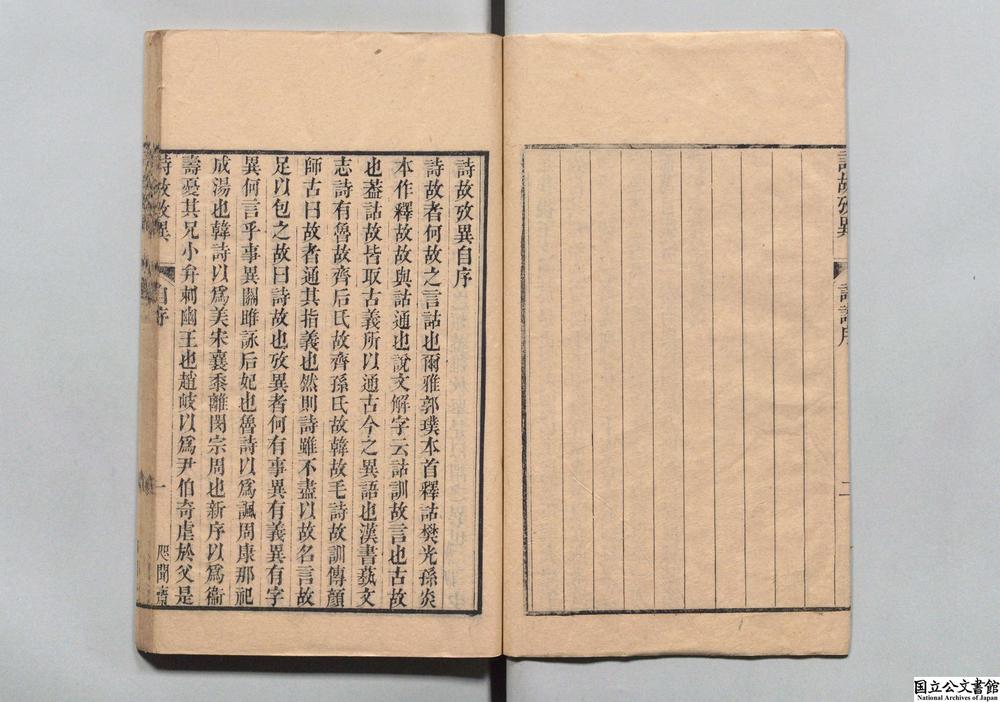 詩故攷異
詩故攷異自序
詩故者何故之言詁也爾雅郭璞本首釋詁樊光孫炎
本作釋故故與詁通也說文解字云詁訓故言也古故
也葢詁故皆取古義所以通古今之異語也漢書蓺文
志詩有魯故齊后氏故齊孫氏故韓故毛詩故訓傳顏
師古曰故者通其指義也然則詩雖不盡以故名言故
足以包之故曰詩故也攷異者何有事異有義異有字
異何言乎事異關雎詠后妃也魯詩以爲諷周康那祀
成湯也韓詩以爲美宋襄黍離閔宗周也新序以爲衞
壽憂其兄小弁刺幽王也趙岐以爲尹伯奇虐於父是
詩故攷異
自序
一
咫聞齋
国立公文書館
National Archives of Japan